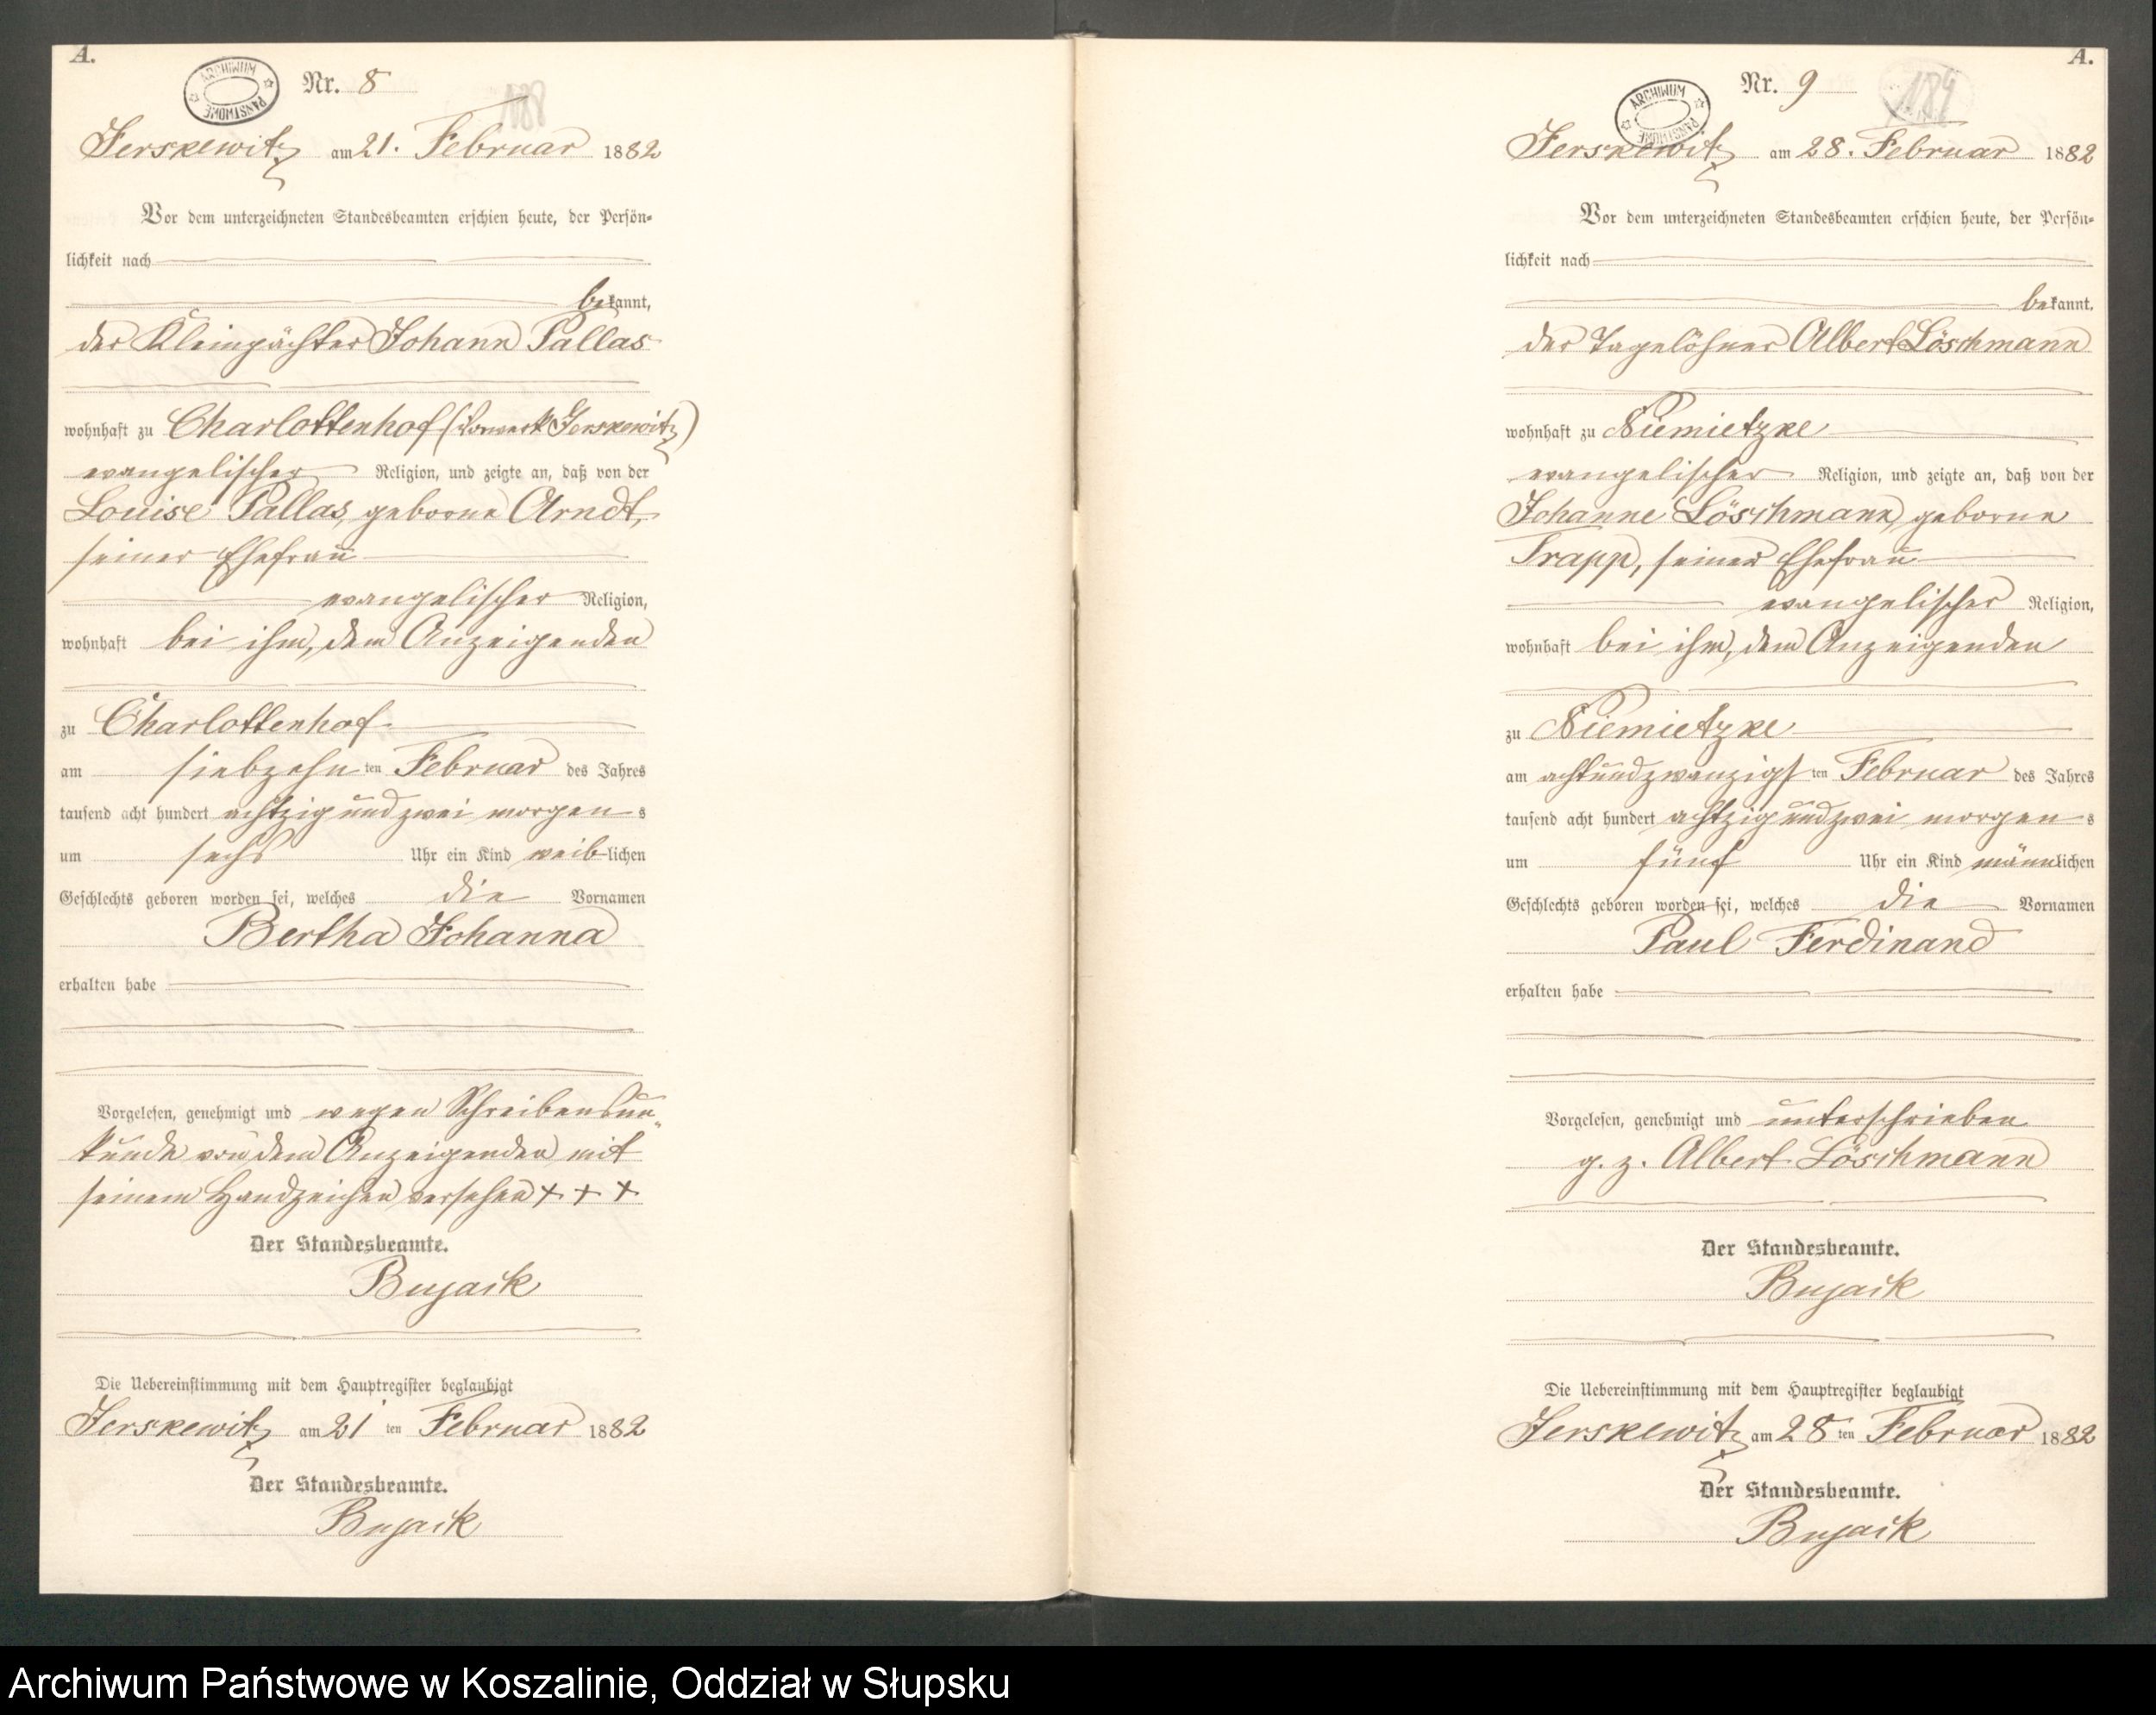 A.
ARCHIWUM PAŃSTWOWE
Nr. 8
188
Jerskewitz am 21. Februar 1882
Vor dem unterzeichneten Standesbeamten erschien heute, der Persön-
lichkeit nach
bekannt,
der Kleinpächter Johann Pallas
wohnhaft zu Charlottenhof (Vorwerk Jerskewitz)
evangelischer Religion, und zeigte an, daß von der
Louise Pallas, geborne Arndt,
seiner Ehefrau
evangelischer Religion,
wohnhaft bei ihm, dem Anzeigenden
zu Charlottenhof
am siebzehnten Februar des Jahres
tausend acht hundert achtzig und zwei morgens
um sechs Uhr ein Kind weiblichen
Geschlechts geboren worden sei, welches die Vornamen
Bertha Johanna
erhalten habe
Vorgelesen, genehmigt und wegen Schreibensun-
kunde von dem Anzeigenden mit
seinem Handzeichen versehen + + +
Der Standesbeamte.
Bujack
Die Uebereinstimmung mit dem Hauptregister beglaubigt
Jerskewitz am 21ten Februar 1882
Der Standesbeamte.
Bujack
A.
ARCHIWUM PAŃSTWOWE
Nr. 9
189
Jerskewitz am 28. Februar 1882
Vor dem unterzeichneten Standesbeamten erschien heute, der Persön-
lichkeit nach
bekannt.
der Tagelöhner Albert Löschmann
wohnhaft zu Niemietzke
evangelischer Religion, und zeigte an, daß von der
Johanne Löschmann, geborne
Trapp, seiner Ehefrau
evangelischer Religion,
wohnhaft bei ihm, dem Anzeigenden
zu Niemietzke
am achtundzwanzigsten Februar des Jahres
tausend acht hundert achtzig und zwei morgens
um fünf Uhr ein Kind männlichen
Geschlechts geboren worden sei, welches die Vornamen
Paul Ferdinand
erhalten habe
Vorgelesen, genehmigt und unterschrieben
g. z. Albert Löschmann
Der Standesbeamte.
Bujack
Die Uebereinstimmung mit dem Hauptregister beglaubigt
Jerskewitz am 28ten Februar 1882
Der Standesbeamte.
Bujack
Archiwum Państwowe w Koszalinie, Oddział w Słupsku